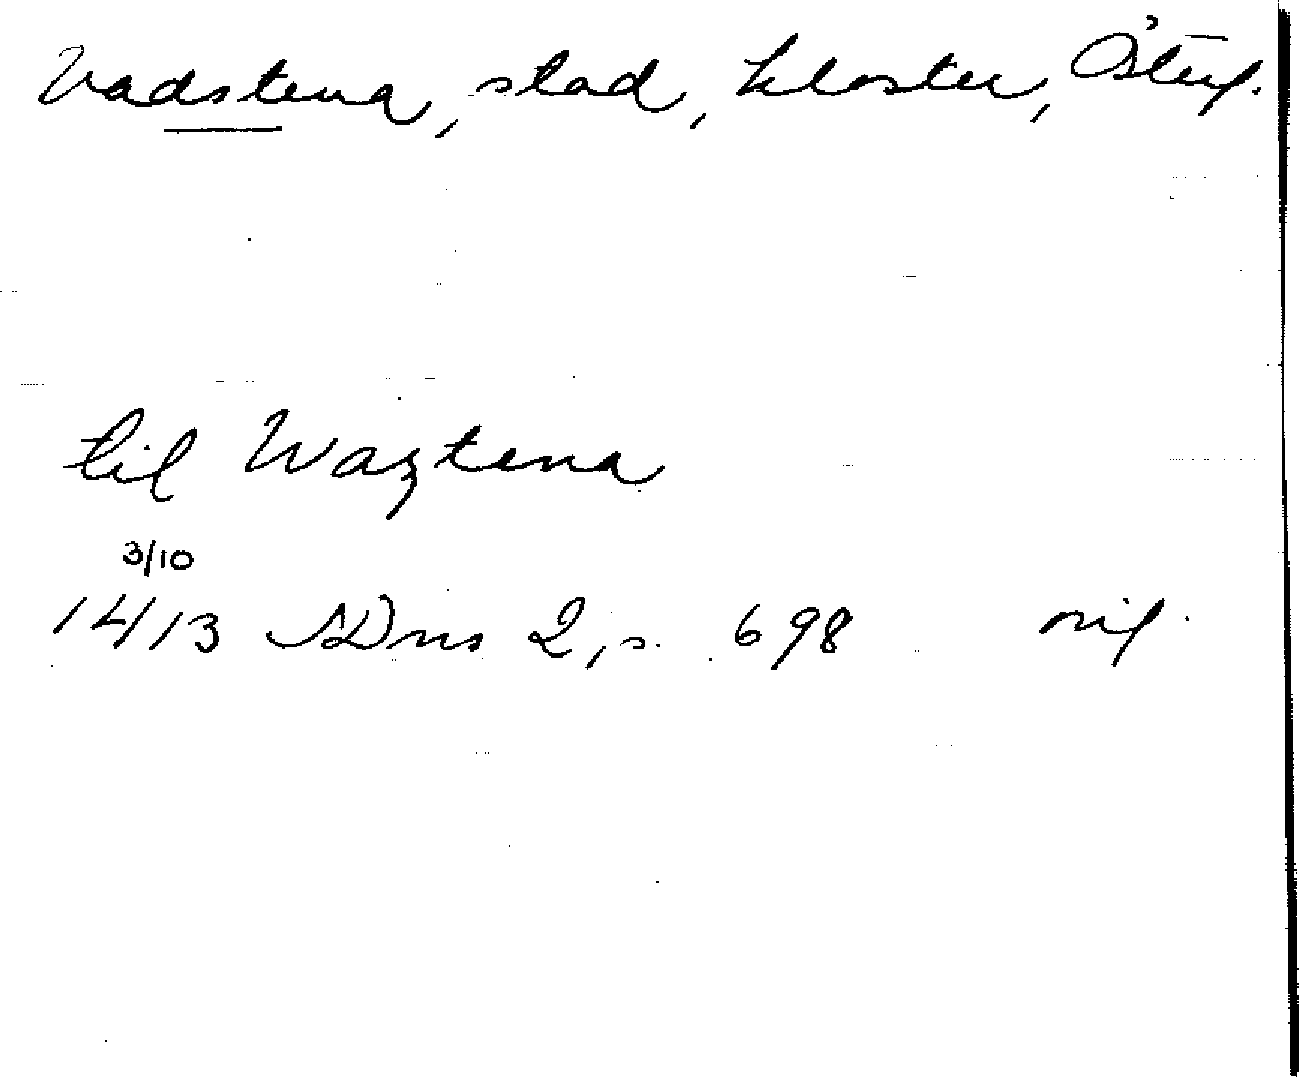 Vadstena, stad, kloster, Östg.
til Waztena
3/10
1413 SDns 2, s. 698 orig.